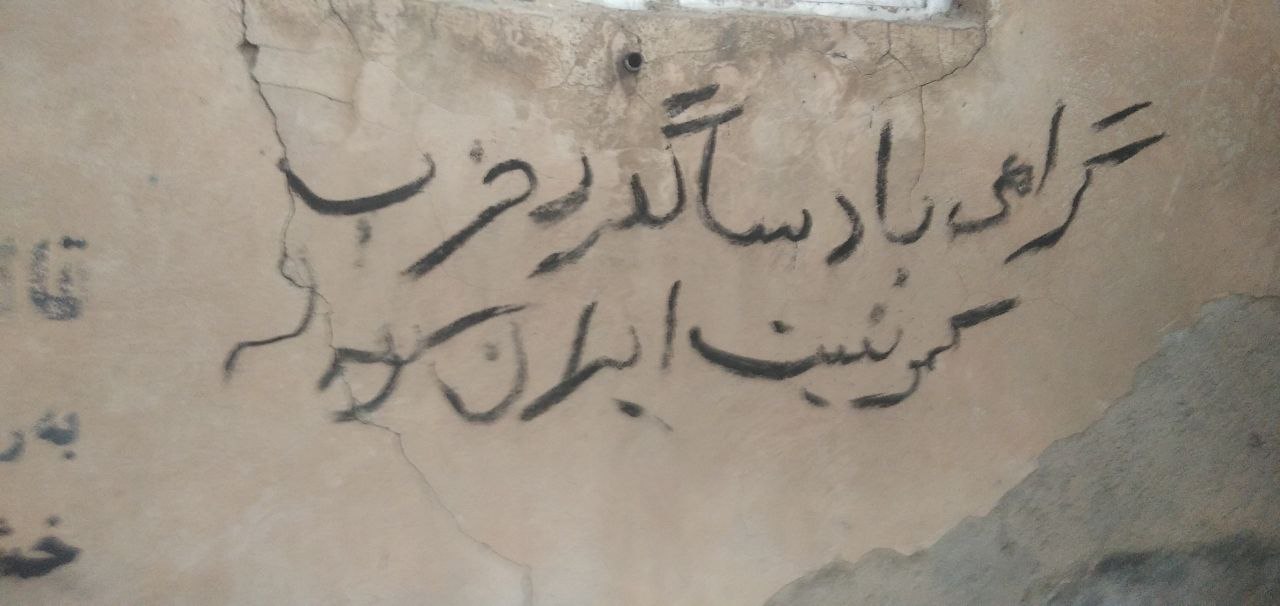 گرامی باد سالگرد حزب
کمونیست ایران کومه له
به ر
خش